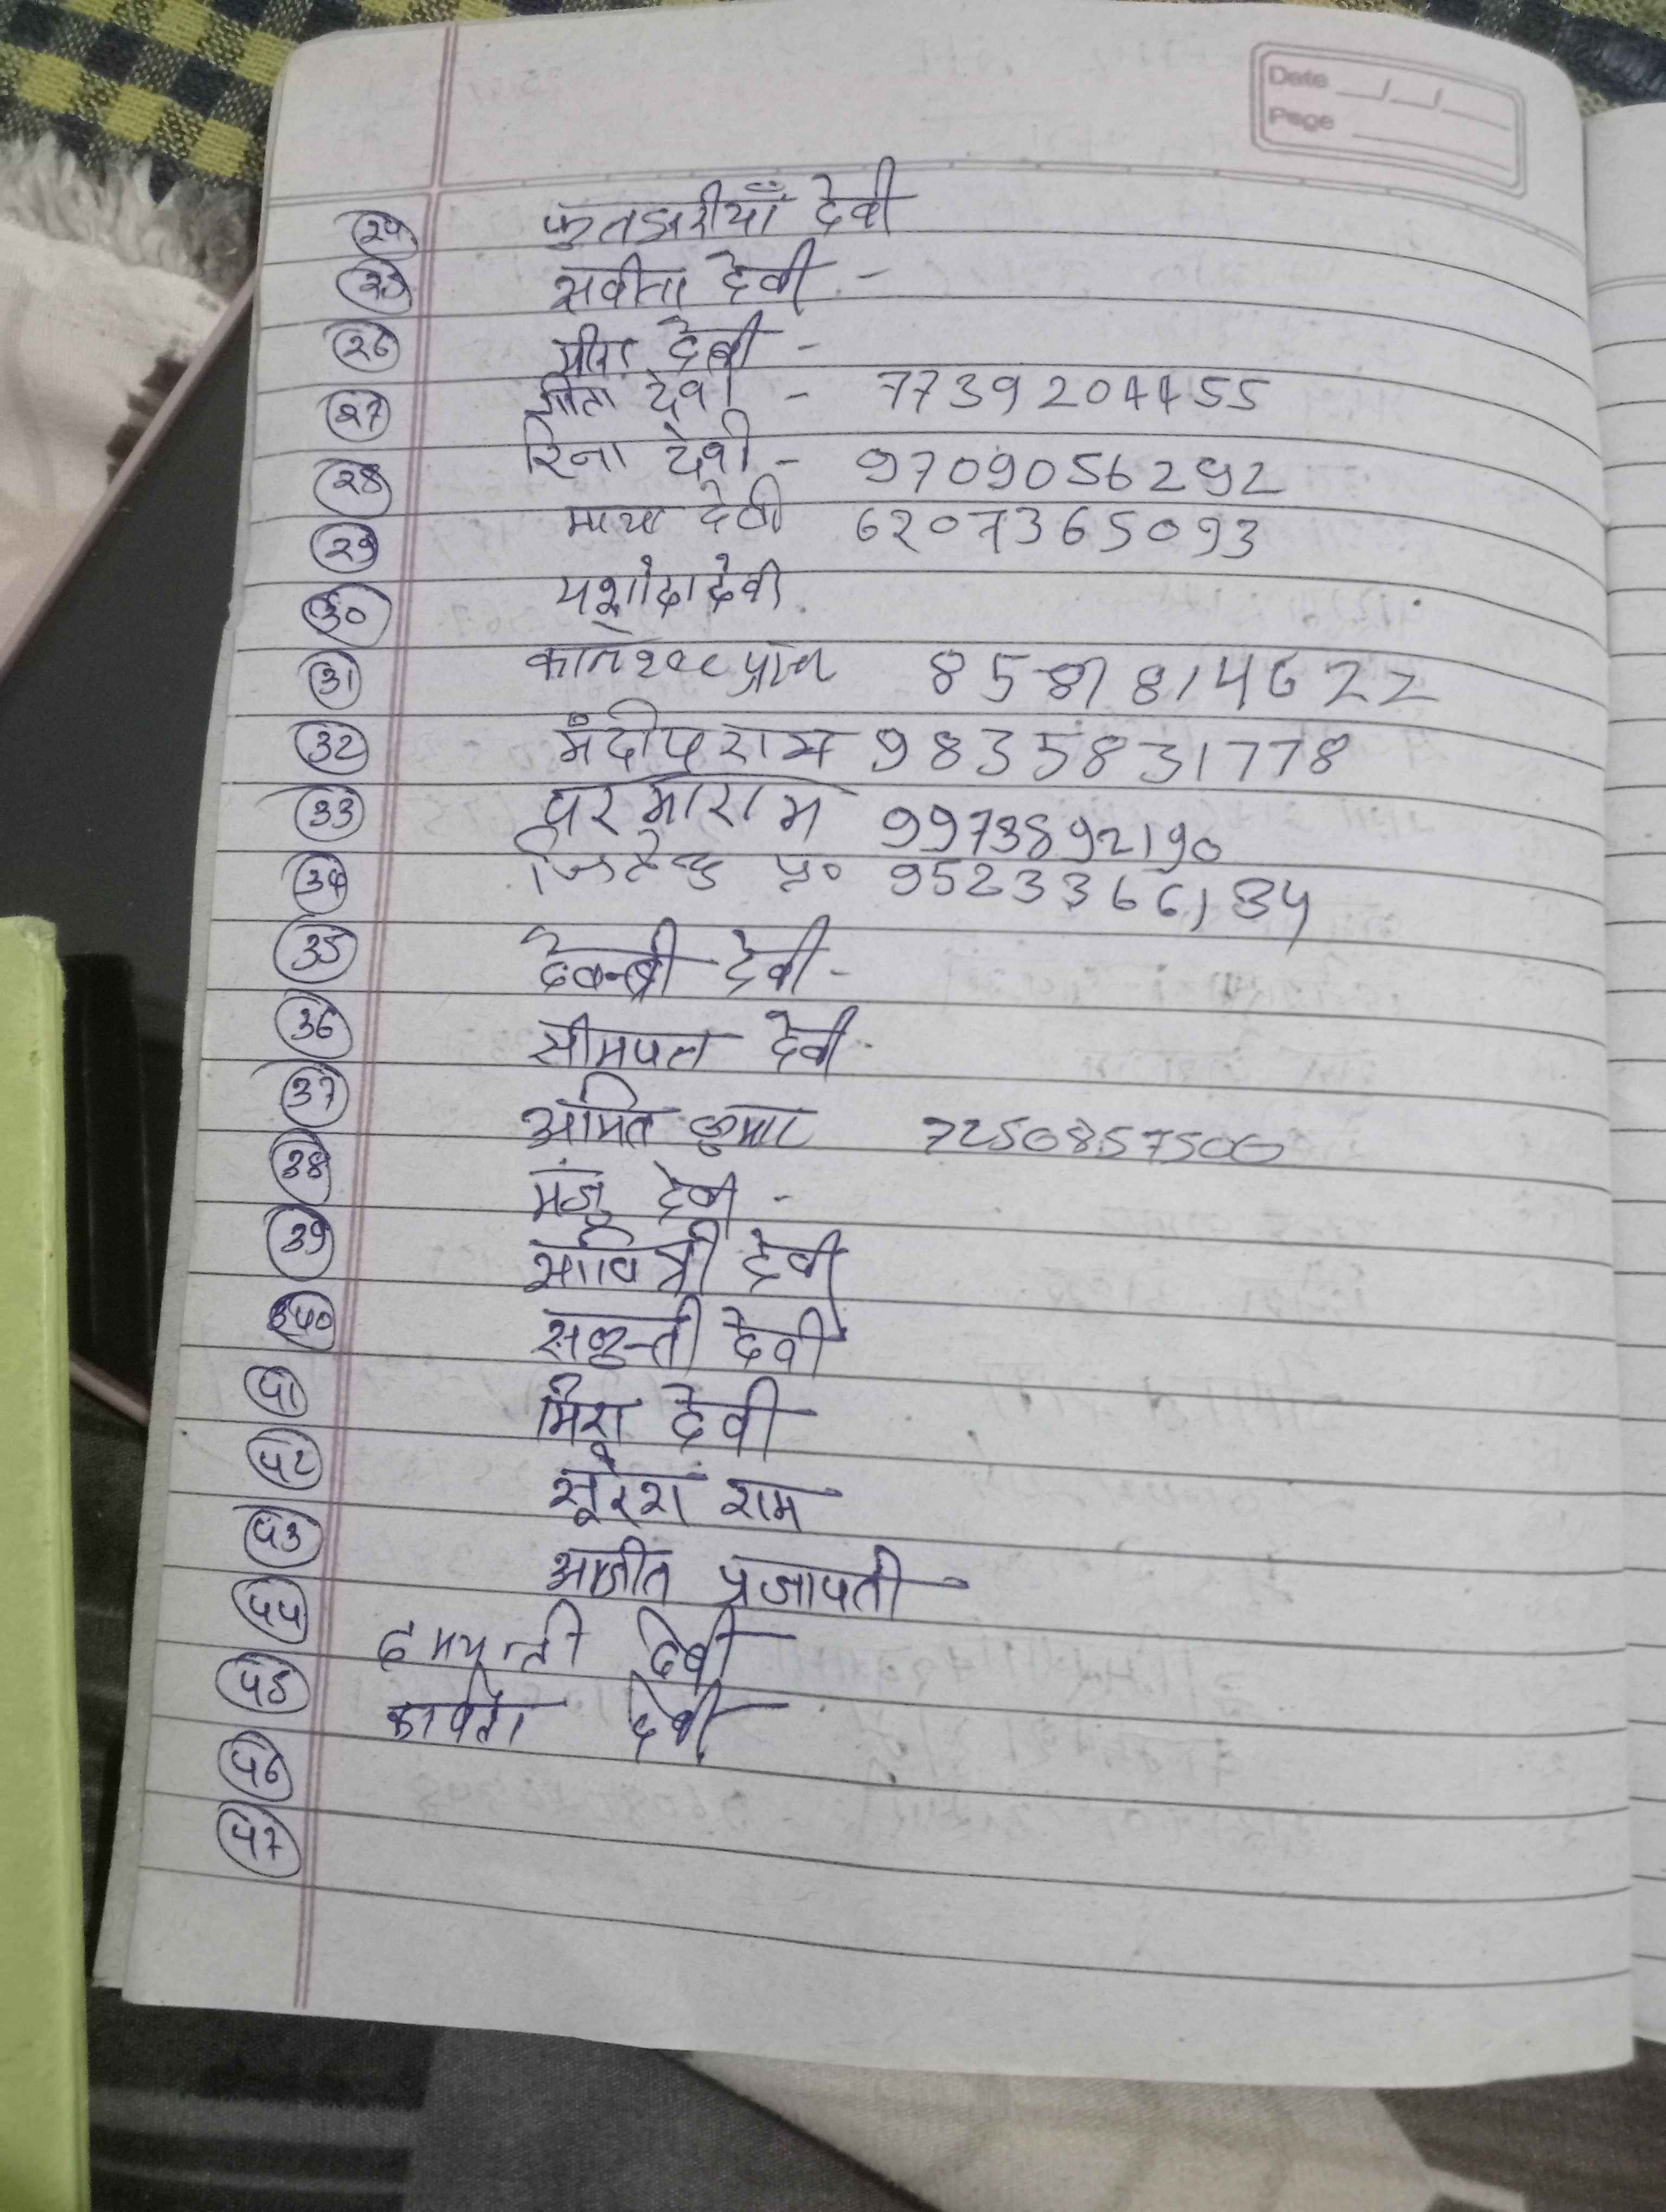 Date __/__/__
Page
२४ फुलझरीयाँ देवी
२५ सवीता देवी -
२६ मीरा देवी -
२७ गीता देवी - 7739204455
२८ रिना देवी - 9709056292
२९ माया देवी 6207365093
३० यशोदा देवी
31 8581814622
32 मंदीप राम 9835831778
33 परमा राम 9973892190
34 जितेन्द्र प्र० 9523366134
35 देवन्ती देवी -
36 सीमपल देवी
37 अमित कुमार 7250857500
38 मंजू देवी -
39 सावित्री देवी
४० सकुन्ती देवी
४१ मिरा देवी
४२ सूरेश राम
४३ अजीत प्रजापती
४४ दमयन्ती देवी
४५ कविता देवी
४६
४७